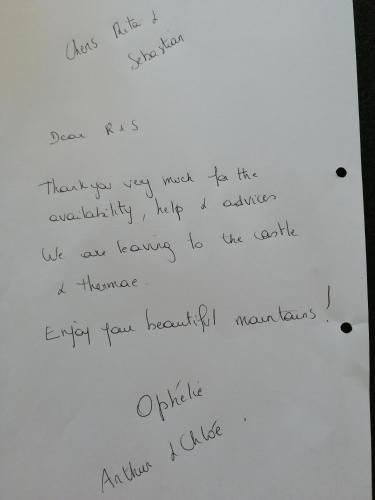 Chers Rita &
Sebastian
Dear R & S
Thank you very much for the
availability, help & advices
We are leaving to the castle
& thermae.
Enjoy your beautiful mountains!
Ophélie
Arthur & Chloé.